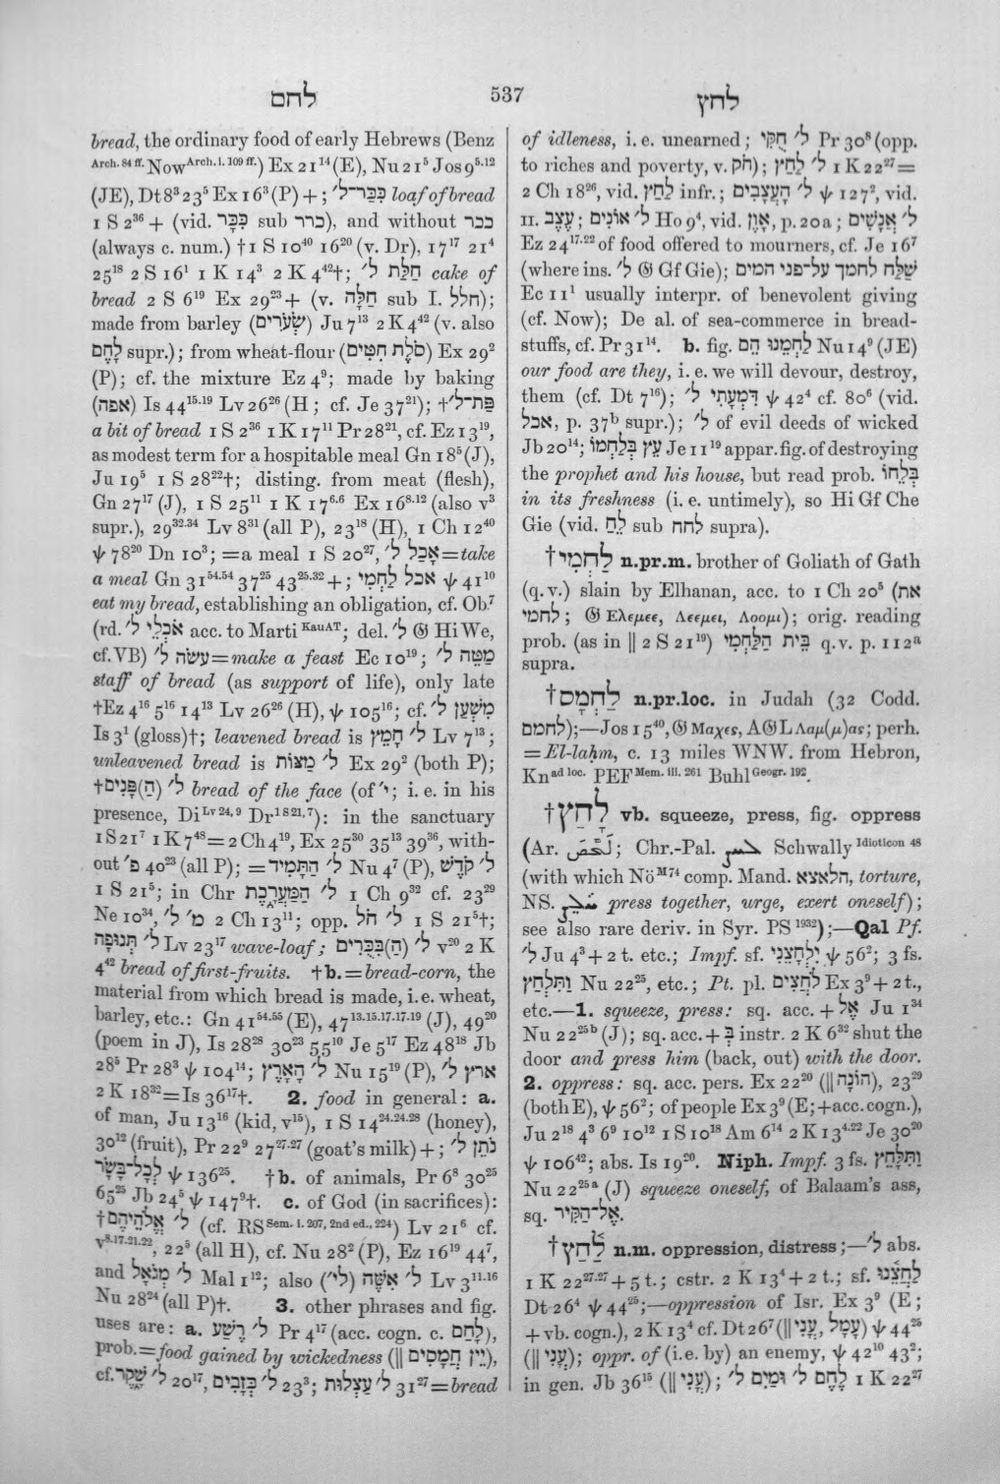 לחם
537
לחץ
bread, the ordinary food of early Hebrews (Benz
Arch. 84 ff. Now Arch. i. 109 ff.) Ex 21¹⁴ (E), Nu 21⁵ Jos 9⁵·¹²
(JE), Dt 8³ 23⁵ Ex 16³ (P) + ; כִּכַּר־ל׳ loaf of bread
1 S 2³⁶ + (vid. כִּכָּר sub כרר), and without ככר
(always c. num.) †1 S 10⁴⁰ 16²⁰ (v. Dr), 17¹⁷ 21⁴
25¹⁸ 2 S 16¹ 1 K 14³ 2 K 4⁴²†; חַלַּת ל׳ cake of
bread 2 S 6¹⁹ Ex 29²³ + (v. חַלָּה sub I. חלל);
made from barley (שְׂעֹרִים) Ju 7¹³ 2 K 4⁴² (v. also
לָחֶם supr.); from wheat-flour (סֹלֶת חִטִּים) Ex 29²
(P); cf. the mixture Ez 4⁹; made by baking
(אפה) Is 44¹⁵·¹⁹ Lv 26²⁶ (H; cf. Je 37²¹); †פַּת־ל׳
a bit of bread 1 S 2³⁶ 1 K 17¹¹ Pr 28²¹, cf. Ez 13¹⁹,
as modest term for a hospitable meal Gn 18⁵ (J),
Ju 19⁵ 1 S 28²²†; disting. from meat (flesh),
Gn 27¹⁷ (J), 1 S 25¹¹ 1 K 17⁶·⁶ Ex 16⁸·¹² (also v³
supr.), 29³²·³⁴ Lv 8³¹ (all P), 23¹⁸ (H), 1 Ch 12⁴⁰
ψ 78²⁰ Dn 10³; = a meal 1 S 20²⁷, אָכַל ל׳ = take
a meal Gn 31⁵⁴·⁵⁴ 37²⁵ 43²⁵·³² + ; אכל לַחְמִי ψ 41¹⁰
eat my bread, establishing an obligation, cf. Ob⁷
(rd. אֹכְלֵי ל׳ acc. to Marti KauAT; del. ל׳ 𝔊 Hi We,
cf. VB) עשׂה ל׳ = make a feast Ec 10¹⁹; מַטֵּה ל׳
staff of bread (as support of life), only late
†Ez 4¹⁶ 5¹⁶ 14¹³ Lv 26²⁶ (H), ψ 105¹⁶; cf. מִשְׁעַן ל׳
Is 3¹ (gloss)†; leavened bread is חָמֵץ ל׳ Lv 7¹³;
unleavened bread is מַצּוֹת ל׳ Ex 29² (both P);
†ל׳ (הַ)פָּנִים bread of the face (of י׳; i. e. in his
presence, Di Lv 24, 9 Dr 1 S 21, 7): in the sanctuary
1 S 21⁷ 1 K 7⁴⁸ = 2 Ch 4¹⁹, Ex 25³⁰ 35¹³ 39³⁶, with-
out פ׳ 40²³ (all P); = ל׳ הַתָּמִיד Nu 4⁷ (P), ל׳ קֹדֶשׁ
1 S 21⁵; in Chr ל׳ הַמַּעֲרֶכֶת 1 Ch 9³² cf. 23²⁹
Ne 10³⁴, מ׳ ל׳ 2 Ch 13¹¹; opp. ל׳ חֹל 1 S 21⁵†;
ל׳ תְּנוּפָה Lv 23¹⁷ wave-loaf; ל׳ (הַ)בִּכֻּרִים v²⁰ 2 K
4⁴² bread of first-fruits. †b. = bread-corn, the
material from which bread is made, i. e. wheat,
barley, etc.: Gn 41⁵⁴·⁵⁵ (E), 47¹³·¹⁵·¹⁷·¹⁷·¹⁹ (J), 49²⁰
(poem in J), Is 28²⁸ 30²³ 55¹⁰ Je 5¹⁷ Ez 48¹⁸ Jb
28⁵ Pr 28³ ψ 104¹⁴; ל׳ הָאָרֶץ Nu 15¹⁹ (P), ארץ ל׳
2 K 18³² = Is 36¹⁷†. 2. food in general: a.
of man, Ju 13¹⁶ (kid, v¹⁵), 1 S 14²⁴·²⁴·²⁸ (honey),
30¹² (fruit), Pr 22⁹ 27²⁷·²⁷ (goat's milk) + ; נֹתֵן ל׳
לְכָל־בָּשָׂר ψ 136²⁵. †b. of animals, Pr 6⁸ 30²⁵
65²⁵ Jb 24⁵ ψ 147⁹†. c. of God (in sacrifices):
†ל׳ אֱלֹהֵיהֶם (cf. RS Sem. i. 207, 2nd ed., 224) Lv 21⁶ cf.
v⁸·¹⁷·²¹·²², 22⁵ (all H), cf. Nu 28² (P), Ez 16¹⁹ 44⁷,
and ל׳ מְגֹאָל Mal 1¹²; also ל׳ אִשֶּׁה (לי׳) Lv 3¹¹·¹⁶
Nu 28²⁴ (all P)†. 3. other phrases and fig.
uses are: a. ל׳ רֶשַׁע Pr 4¹⁷ (acc. cogn. c. לָחַם),
prob. = food gained by wickedness (|| יֵין חֲמָסִים),
cf. ל׳ שֶׁקֶר 20¹⁷, ל׳ כְּזָבִים 23³; ל׳ עַצְלוּת 31²⁷ = bread
of idleness, i. e. unearned; ל׳ חֻקִּי Pr 30⁸ (opp.
to riches and poverty, v. חֹק); ל׳ לַחַץ 1 K 22²⁷ =
2 Ch 18²⁶, vid. לַחַץ infr.; ל׳ הָעֲצָבִים ψ 127², vid.
II. עֶצֶב; ל׳ אוֹנִים Ho 9⁴, vid. אָוֶן, p. 20a; ל׳ אֲנָשִׁים
Ez 24¹⁷·²² of food offered to mourners, cf. Je 16⁷
(where ins. ל׳ 𝔊 Gf Gie); שַׁלַּח לחמך על־פני המים
Ec 11¹ usually interpr. of benevolent giving
(cf. Now); De al. of sea-commerce in bread-
stuffs, cf. Pr 31¹⁴. b. fig. לַחְמֵנוּ הֵם Nu 14⁹ (JE)
our food are they, i. e. we will devour, destroy,
them (cf. Dt 7¹⁶); דִּמְעָתִי ל׳ ψ 42⁴ cf. 80⁶ (vid.
אכל, p. 37b supr.); ל׳ of evil deeds of wicked
Jb 20¹⁴; עֵץ בְּלַחְמוֹ Je 11¹⁹ appar. fig. of destroying
the prophet and his house, but read prob. בְּלֵחוֹ
in its freshness (i. e. untimely), so Hi Gf Che
Gie (vid. לֵחַ sub לחח supra).
†לַחְמִי n.pr.m. brother of Goliath of Gath
(q.v.) slain by Elhanan, acc. to 1 Ch 20⁵ (את
לחמי; 𝔊 Ελεμεε, Λεεμει, Λοομι); orig. reading
prob. (as in || 2 S 21¹⁹) בֵּית הַלַּחְמִי q.v. p. 112a
supra.
†לַחְמָס n.pr.loc. in Judah (32 Codd.
לחמם);—Jos 15⁴⁰, 𝔊 Μαχες, A𝔊L Λαμ(μ)ας; perh.
= El-laḥm, c. 13 miles WNW. from Hebron,
Kn ad loc. PEF Mem. iii. 261 Buhl Geogr. 192.
†לָחַץ vb. squeeze, press, fig. oppress
(Ar. لَحَصَ; Chr.-Pal. Schwally Idioticon 48
(with which Nö M 74 comp. Mand. הלאצא, torture,
NS. press together, urge, exert oneself);
see also rare deriv. in Syr. PS 1932);—Qal Pf.
ל׳ Ju 4³ + 2 t. etc.; Impf. sf. יִלְחָצֵנִי ψ 56²; 3 fs.
וַתִּלְחַץ Nu 22²⁵, etc.; Pt. pl. לֹחֲצִים Ex 3⁹ + 2 t.,
etc.—1. squeeze, press: sq. acc. + אֶל Ju 1³⁴
Nu 22²⁵ᵇ (J); sq. acc. + בְּ instr. 2 K 6³² shut the
door and press him (back, out) with the door.
2. oppress: sq. acc. pers. Ex 22²⁰ (|| הוֹנָה), 23²⁹
(both E), ψ 56²; of people Ex 3⁹ (E; + acc. cogn.),
Ju 2¹⁸ 4³ 6⁹ 10¹² 1 S 10¹⁸ Am 6¹⁴ 2 K 13⁴·²² Je 30²⁰
ψ 106⁴²; abs. Is 19²⁰. Niph. Impf. 3 fs. וַתִּלָּחֵץ
Nu 22²⁵ᵃ (J) squeeze oneself, of Balaam's ass,
sq. אֶל־הַקִּיר.
†לַחַץ n.m. oppression, distress;—ל׳ abs.
1 K 22²⁷·²⁷ + 5 t.; cstr. 2 K 13⁴ + 2 t.; sf. לַחֲצֵנוּ
Dt 26⁴ ψ 44²⁵;—oppression of Isr. Ex 3⁹ (E;
+ vb. cogn.), 2 K 13⁴ cf. Dt 26⁷ (|| עֳנִי, עָמָל) ψ 44²⁵
(|| עֳנִי); oppr. of (i. e. by) an enemy, ψ 42¹⁰ 43²;
in gen. Jb 36¹⁵ (|| עֳנִי); לֶחֶם ל׳ וּמַיִם ל׳ 1 K 22²⁷